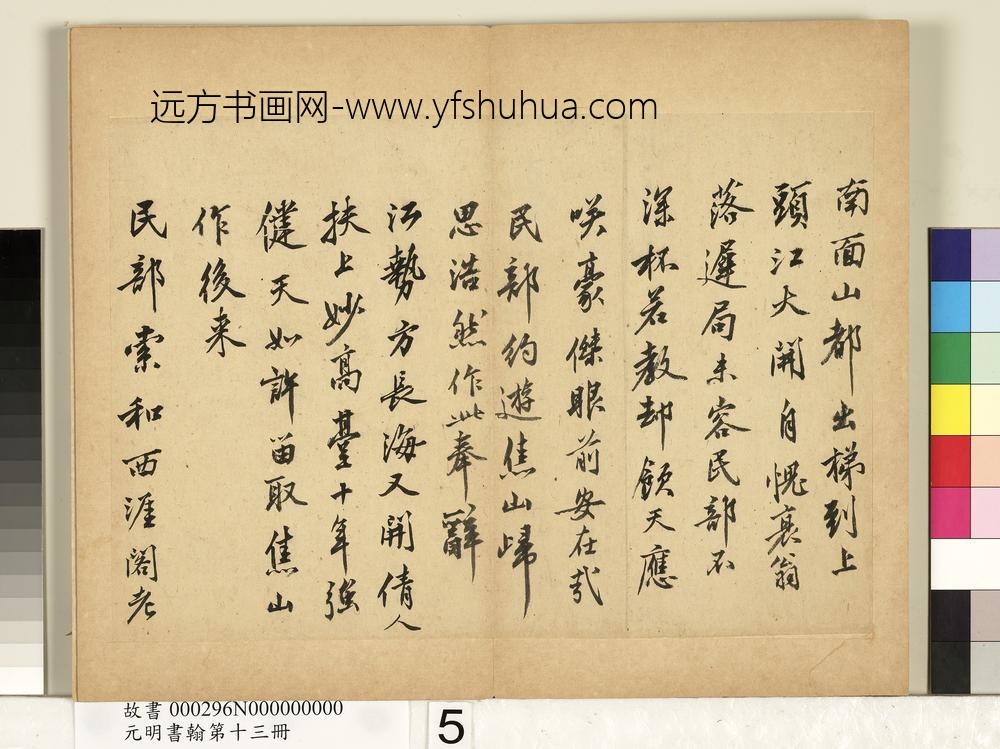 远方书画网-www.yfshuhua.com
南面山都出梯到上
頭江大開自愧衰翁
落遲局未容民部不
深杯若教却顧天應
咲豪傑眼前安在㢤
民部約遊焦山歸
思浩然作此奉辭
江勢方長海又開倩人
扶上妙高臺十年強
健天如許留取焦山
作後来
民部索和西涯閣老
故書 000296N000000000
元明書翰第十三冊
5